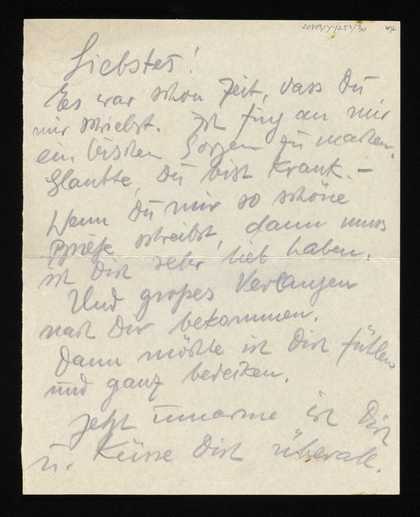 Liebstes!
Es war schon Zeit, dass Du
mir schriebst. Ich fing an mir
ein bischen Sorgen zu machen.
Glaubte, Du bist Krank. –
Wenn Du mir so schöne
Briefe schreibst, dann muss
ich Dich sehr lieb haben.
Und grosses Verlangen
nach Dir bekommen.
Dann möchte ich Dich fühlen
und ganz
Jetzt umarme ich Dich
u. Küsse Dich überall.